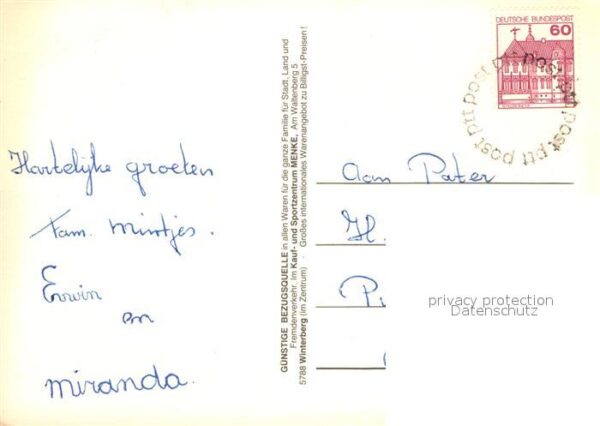 Hartelijke groeten
Fam. Mintjes.
Erwin
en
miranda.
GÜNSTIGE BEZUGSQUELLE in allen Waren für die ganze Familie für Stadt, Land und
Fremdenverkehr. Im Kauf- und Sportzentrum MENKE, Am Waltenberg 5
5788 Winterberg (im Zentrum) Großes internationales Warenangebot zu Billigst-Preisen!
DEUTSCHE BUNDESPOST
60
post ptt post ptt post ptt post ptt post
Aan Pater
H.
privacy protection
Datenschutz